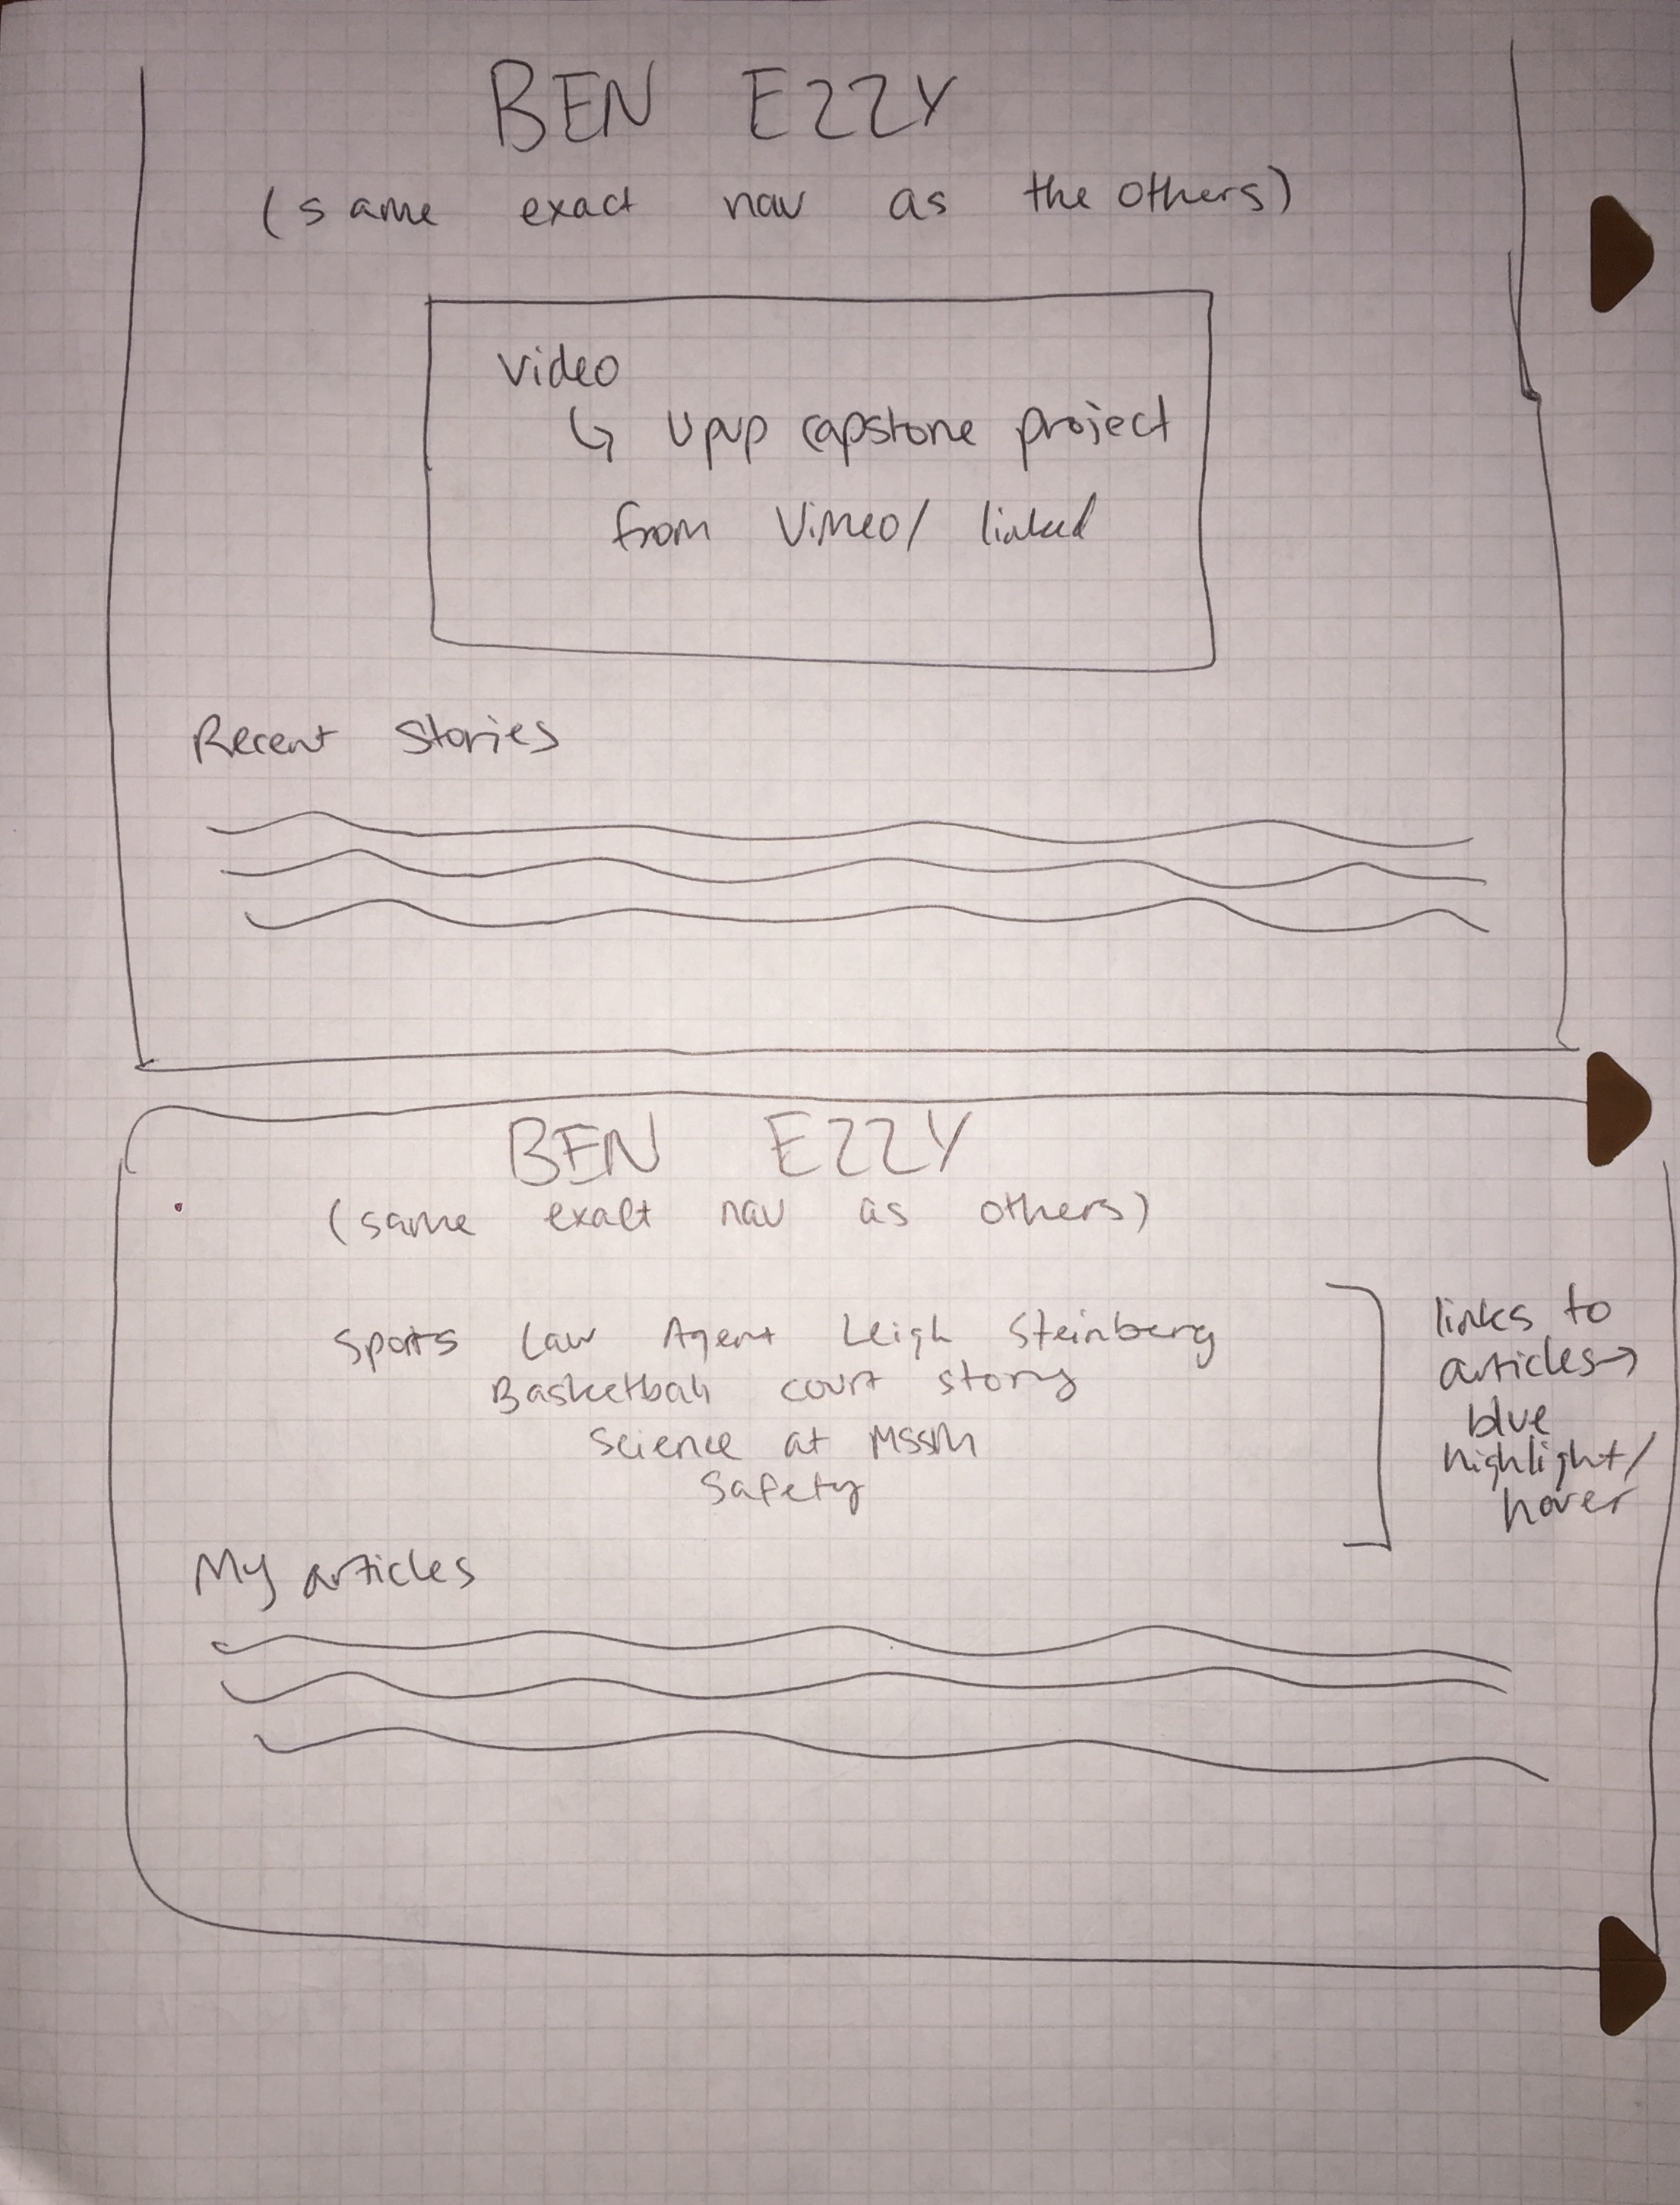 BEN EZZY
(same exact nav as the others)
Video
↳ Upup capstone project
from Vimeo/ linked
Recent Stories
BEN EZZY
(same exact nav as others)
Sports Law Agent Leigh Steinberg
Basketball court story
Science at MSSM
Safety
links to
articles→
blue
highlight/
hover
My articles